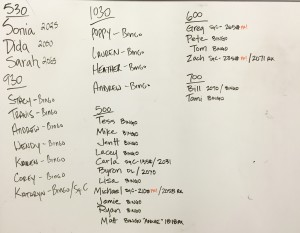 530
Sonia 2025
Dida 2000
Sarah 2025
930
Stacy - Bingo
Travis - Bingo
Andrew - Bingo
Wendy - Bingo
Karen - Bingo
Corey - Bingo
Kathryn - Bingo/SIC
1030
Poppy - Bingo
Lauren - Bingo
Heather - Bingo
Andrew - Bingo
500
Tess Bingo
Mike Bingo
Jenft Bingo
Lacey Bingo
Carla SIC-1558/2031
Byron DL/2070
Lisa Bingo
Michael SIC-2108 / 2028 RR
Jamie Bingo
Ryan Bingo
Matt Bingo 1818 RR
600
Greg SIC-2050
Pete Bingo
Tom Bingo
Zach SIC-2350 / 2071 RR
700
Bill 2070/Bingo
Tami Bingo